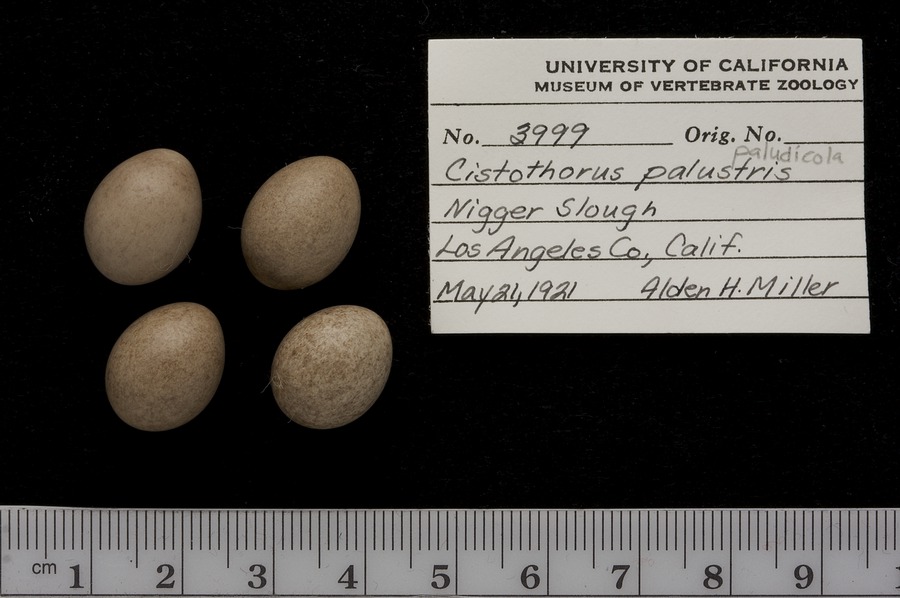 UNIVERSITY OF CALIFORNIA
MUSEUM OF VERTEBRATE ZOOLOGY
No. 3999 Orig. No.
paludicola
Cistothorus palustris
Nigger Slough
Los Angeles Co., Calif.
May 21, 1921 Alden H. Miller
cm 1 2 3 4 5 6 7 8 9 1